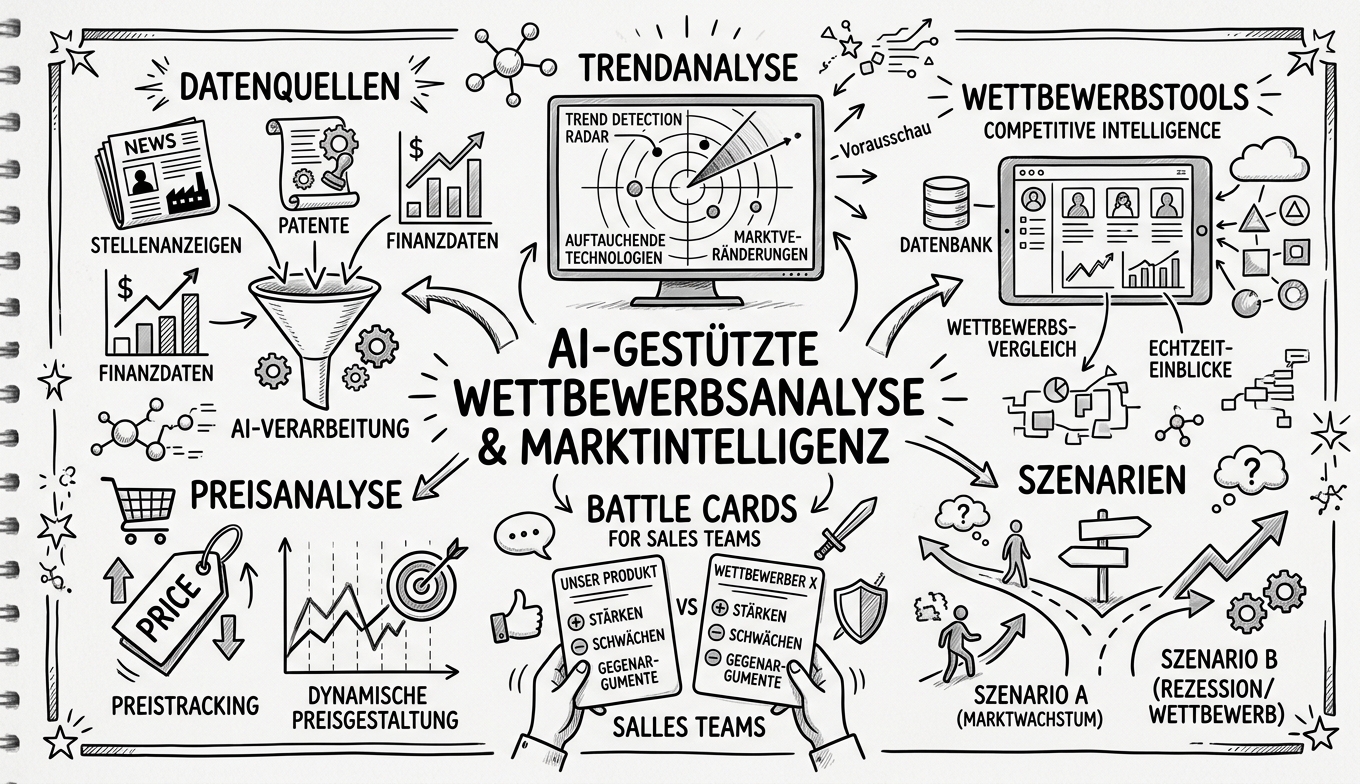 DATENQUELLEN
NEWS
STELLENANZEIGEN
PATENTE
$
FINANZDATEN
$
FINANZDATEN
AI-VERARBEITUNG
TRENDANALYSE
TREND DETECTION
RADAR
AUFTAUCHENDE
TECHNOLOGIEN
MARKTVE-
RÄNDERUNGEN
- Vorausschau
WETTBEWERBSTOOLS
COMPETITIVE INTELLIGENCE
DATENBANK
WETTBEWERBS-
VERGLEICH
ECHTZEIT-
EINBLICKE
AI-GESTÜTZTE
WETTBEWERBSANALYSE
& MARKTINTELLIGENZ
PREISANALYSE
PRICE
PREISTRACKING
DYNAMISCHE
PREISGESTALTUNG
BATTLE CARDS
FOR SALES TEAMS
UNSER PRODUKT
+ STÄRKEN
- SCHWÄCHEN
- GEGENAR-
GUMENTE
VS
WETTBEWERBER X
+ STÄRKEN
- SCHWÄCHEN
- GEGENAR-
GUMENTE
SALLES TEAMS
SZENARIEN
?
?
SZENARIO A
(MARKTWACHSTUM)
SZENARIO B
(REZESSION/
WETTBEWERB)